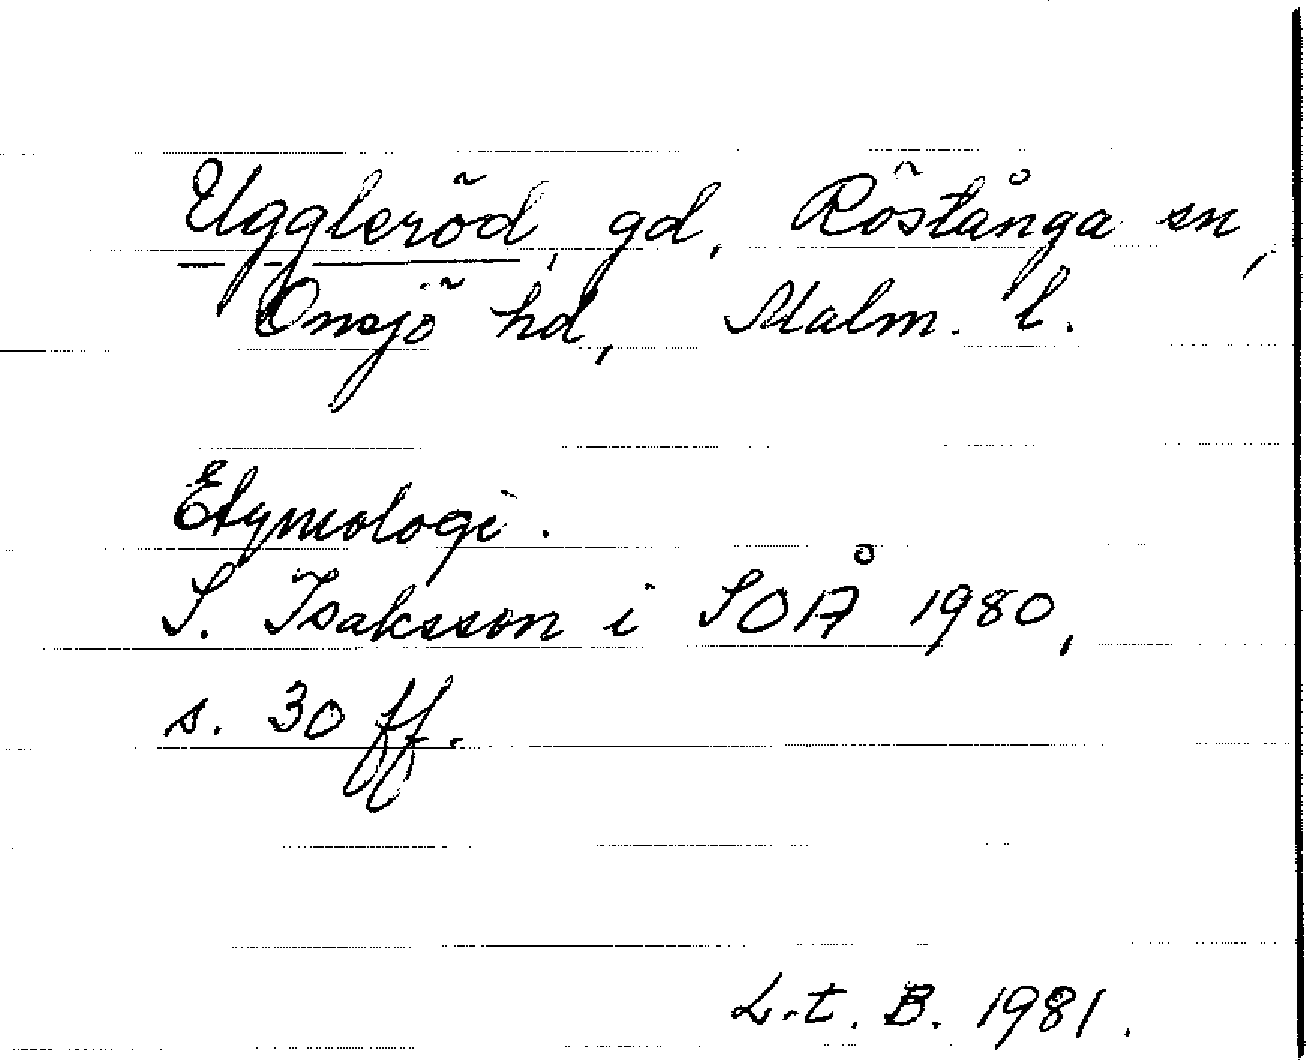 Uggleröd, gd, Röstånga sn,
Onsjö hd, Malm. l.
Etymologi.
S. Isaksson i SOÅ 1980,
s. 30 ff.
L.t. B. 1981.